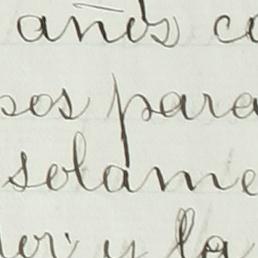 años co
sos para
solame
or y la